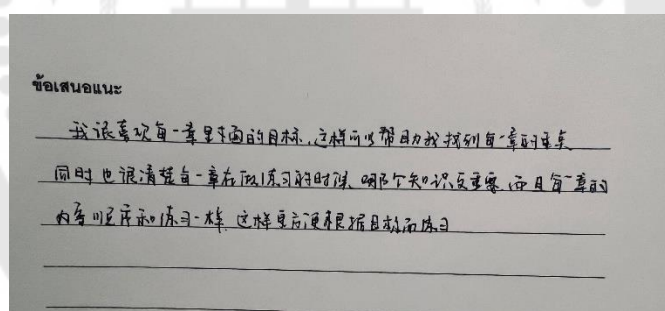 ข้อเสนอแนะ
我很喜欢每一章里面的目标,这样可以帮助我找到每一章的重点
同时也很清楚每一章在做练习的时候,哪个知识反重要,而且每一章的
内容顺序和练习一样,这样更方便根据目标而练习